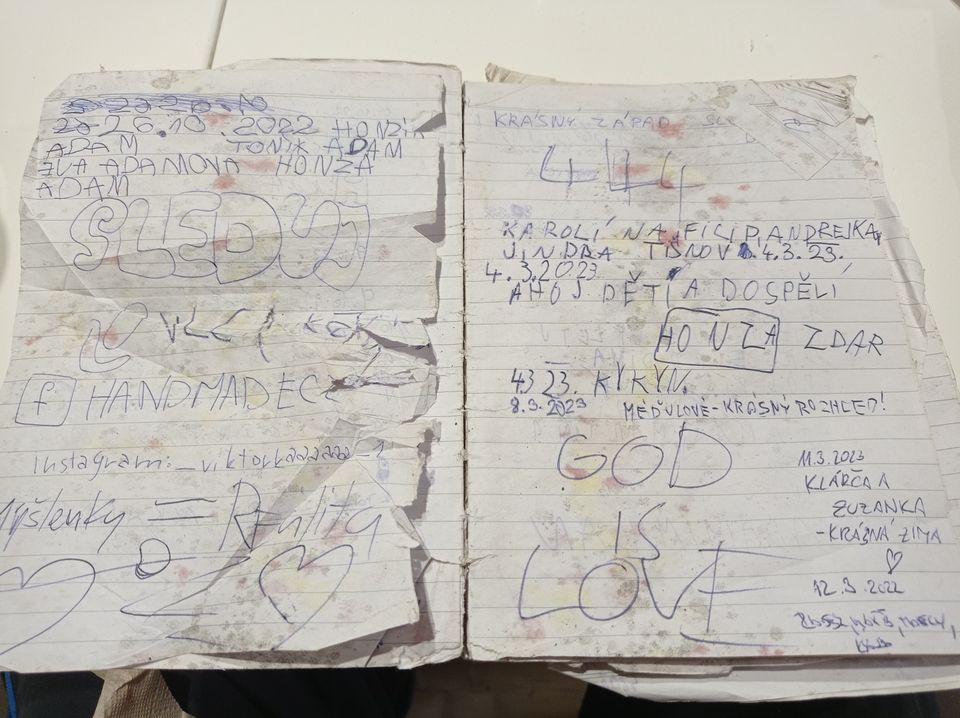 26.10.2022 HONZÍK
ADAM TONIK ADAM
EVA ADAMOVA HONZA
ADAM
SLEDUJ
f HANDMADECZ
Instagram:_viktorkaaaaaa_1
Myšlenky = Reality
KRÁSNÝ ZÁPAD
444
KAROLÍNA, FILIP, ANDREJKA,
JINDRA TIŠNOV 4.3.23.
4.3.2023
AHOJ DĚTÍ A DOSPĚLÍ
HONZA ZDAR
4323. KYKYN.
8.3.2023 MĚĎULOVÉ-KRÁSNÝ ROZHLED!
GOD
IS
LOVE
11.3.2023
KLÁRČA A
ZUZANKA
-KRÁSNÁ ZIMA
♡
12.3.2022